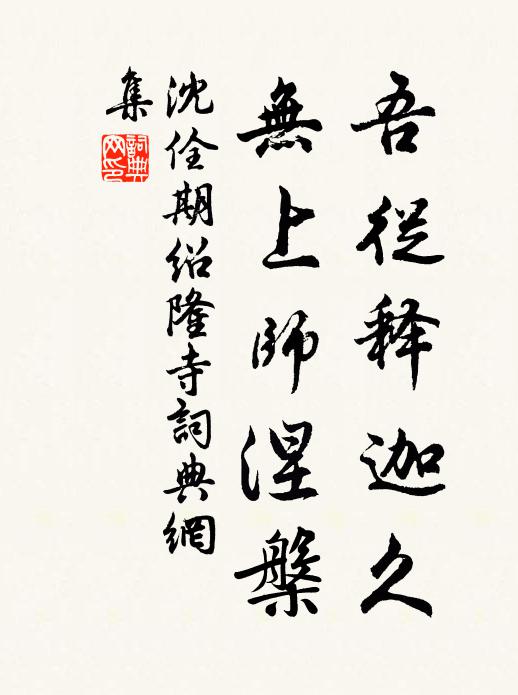 吾從释迦久
無上師涅槃
沈佺期绍隆寺詞典網
集
詞典
网印